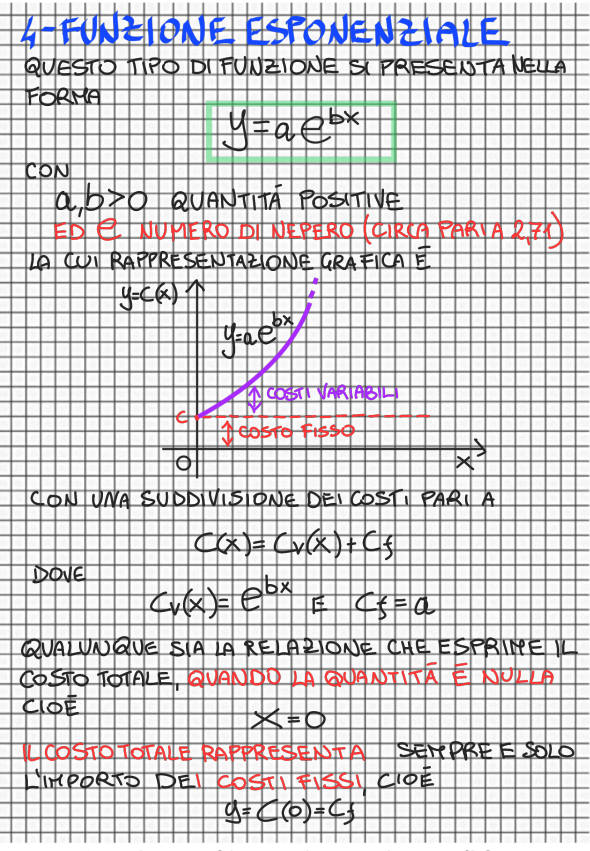 4-FUNZIONE ESPONENZIALE
QUESTO TIPO DI FUNZIONE SI PRESENTA NELLA
FORMA
y=ae^bx
CON
a,b>0 QUANTITÁ POSITIVE
ED e NUMERO DI NEPERO (CIRCA PARI A 2,71)
LA CUI RAPPRESENTAZIONE GRAFICA É
y=C(x)
y=ae^bx
COSTI VARIABILI
C
COSTO FISSO
O
x
CON UNA SUDDIVISIONE DEI COSTI PARI A
C(x)=Cv(x)+Cf
DOVE
Cv(x)=e^bx E Cf=a
QUALUNQUE SIA LA RELAZIONE CHE ESPRIME IL
COSTO TOTALE, QUANDO LA QUANTITÁ É NULLA
CIOÉ
X=0
IL COSTO TOTALE RAPPRESENTA SEMPRE E SOLO
L'IMPORTO DEI COSTI FISSI, CIOÉ
y=C(0)=Cf